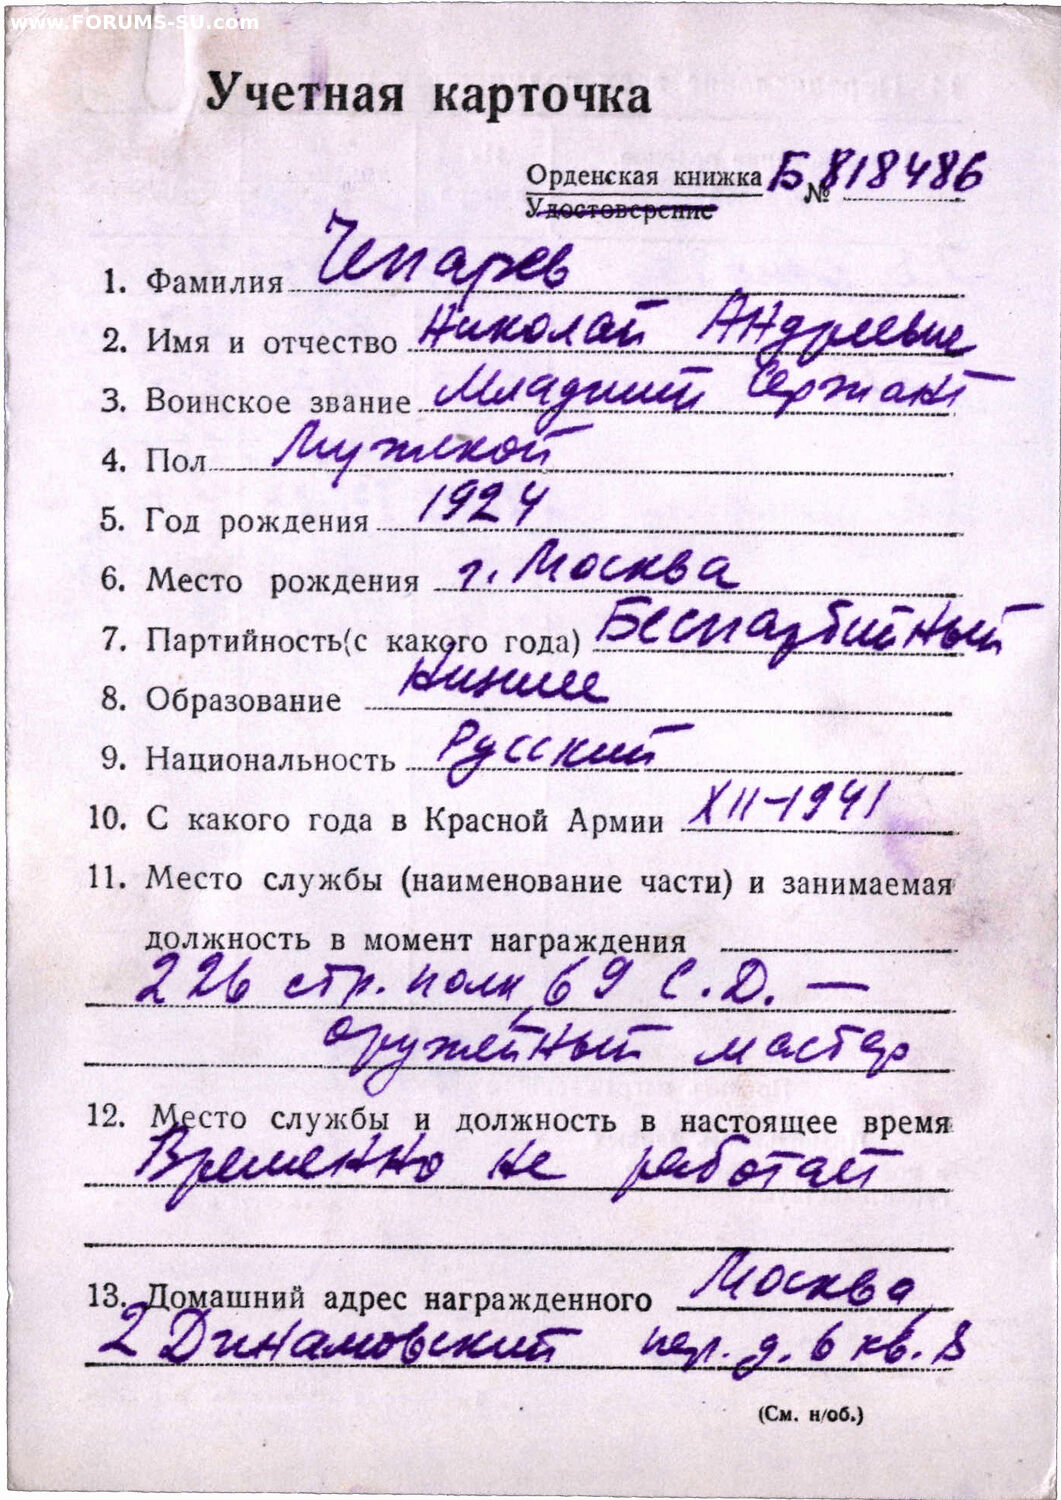 www.FORUMS-SU.com
Учетная карточка
Орденская книжка Б № 818486
Удостоверение
1. Фамилия Чепарев
2. Имя и отчество Николай Андреевич
3. Воинское звание Младший Сержант
4. Пол Мужской
5. Год рождения 1924
6. Место рождения г. Москва
7. Партийность (с какого года) Беспартийный
8. Образование Низшее
9. Национальность Русский
10. С какого года в Красной Армии XII-1941
11. Место службы (наименование части) и занимаемая
должность в момент награждения
226 стр. полк, 69 С.Д. —
оружейный мастер
12. Место службы и должность в настоящее время
Временно не работает
13. Домашний адрес награжденного Москва,
2 Динамовский пер. д. 6 кв. 8
(См. н/об.)